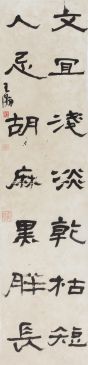 文宜淺淡乾枯短
人忌胡麻黑胖長